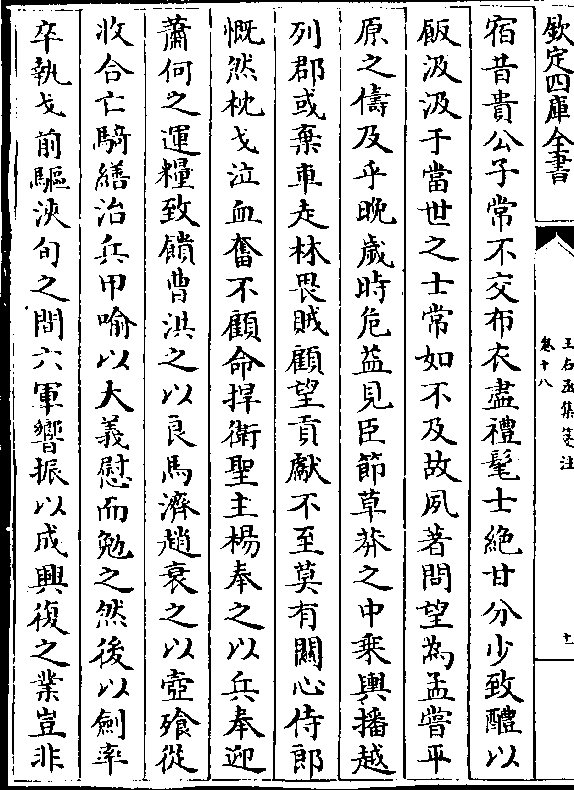 欽定四庫全書
王右丞集箋注
卷十八
十一
宿昔貴公子常不交布衣盡禮髦士絶甘分少致醴以
飯汲汲于當世之士常如不及故夙著問望為孟嘗平
原之儔及乎晚歲時危益見臣節草莽之中乗輿播越
列郡或棄車走林畏賊顧望貢獻不至莫有鬭心侍郎
慨然枕戈泣血奮不顧命捍衛聖主楊奉之以兵奉迎
蕭何之運糧致饋曹洪之以良馬濟趙衰之以壺飱從
收合亡騎繕治兵甲喻以大義慰而勉之然後以劍率
卒執戈前驅浹旬之間六軍響振以成興復之業豈非